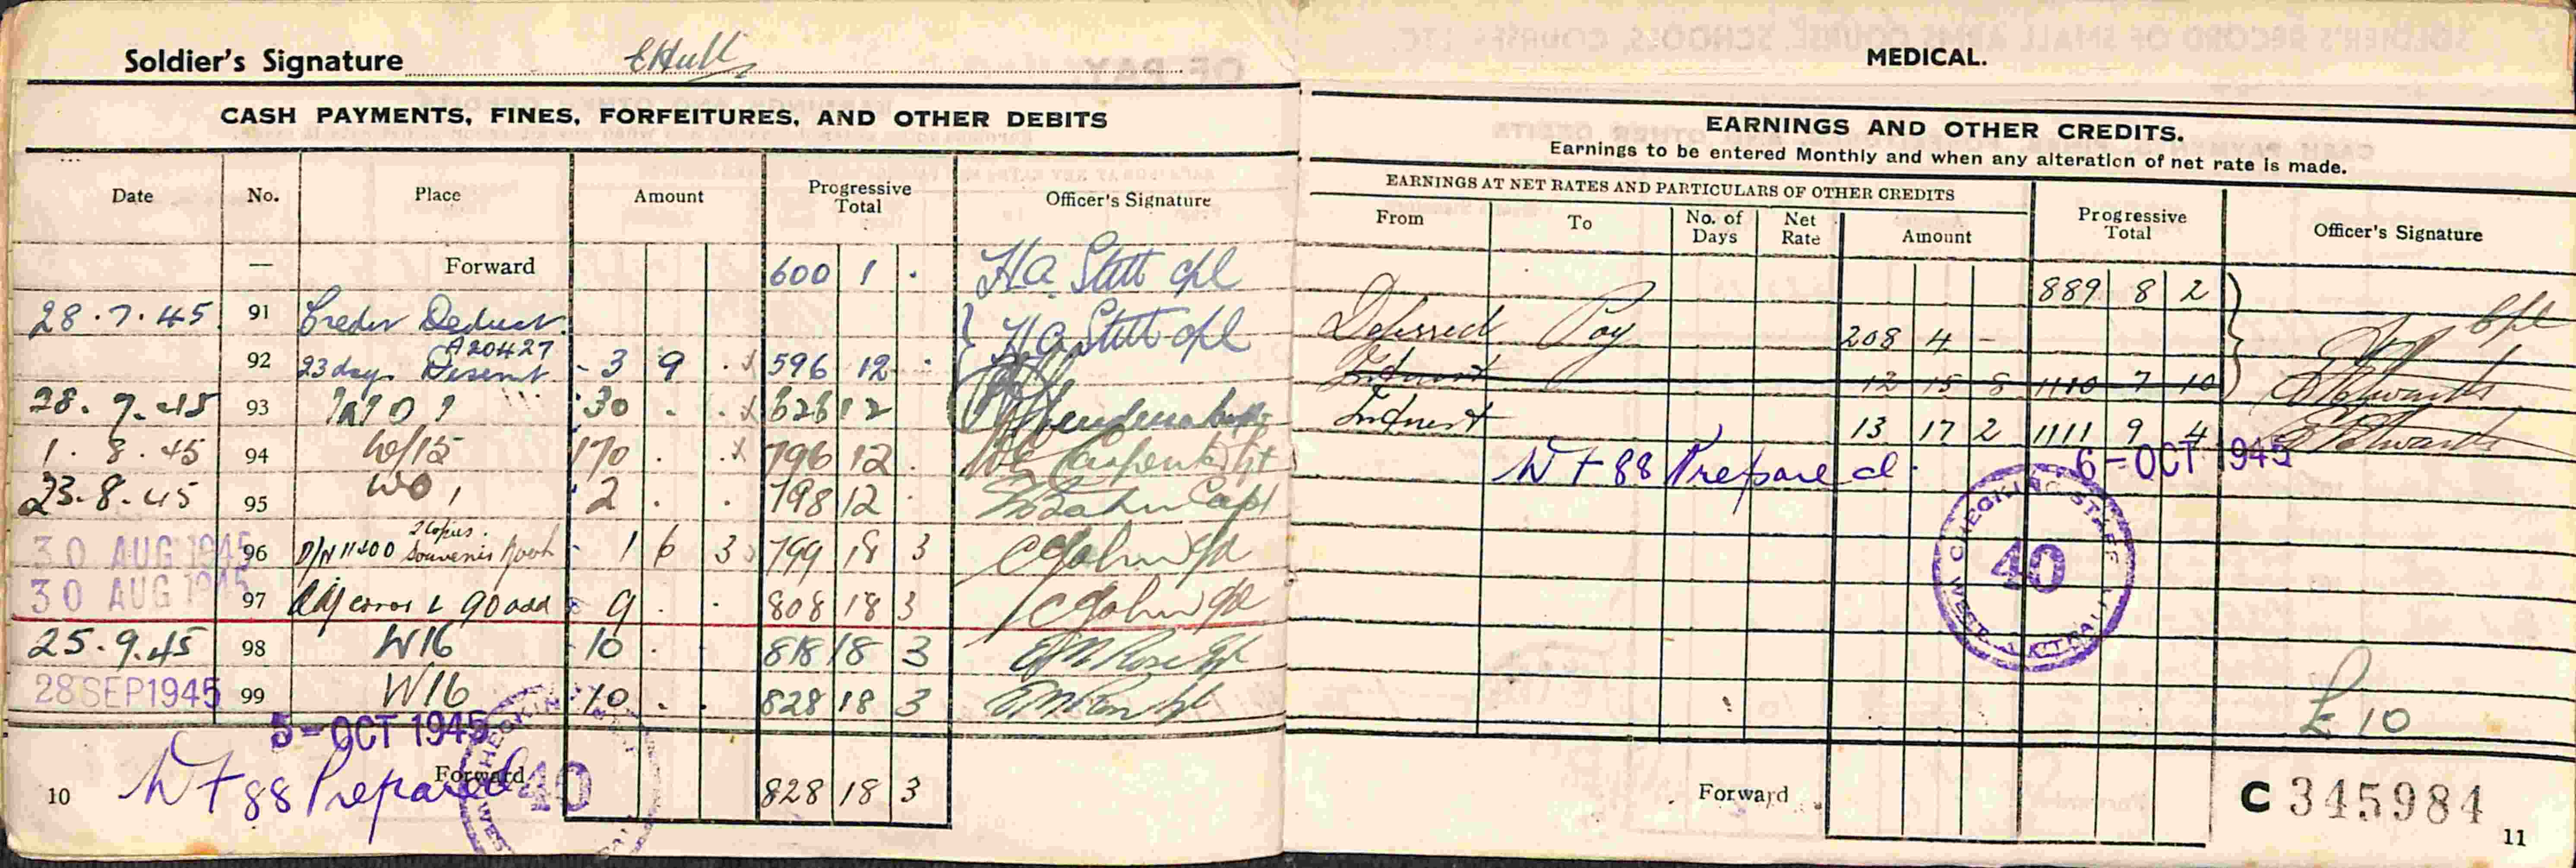 Soldier's Signature EHull
CASH PAYMENTS, FINES, FORFEITURES, AND OTHER DEBITS
Date No. Place Amount Progressive Total Officer's Signature
— Forward 600 1 . H.a. Statt cpl
28.7.45 91 Credit Deduct.
A20427
92 23 days - 3 9 . 596 12 . H.a. Statt cpl
28.7.45 93 30 . . 626 12
1.8.45 94 W/15 170 . . 796 12 .
23.8.45 95 WO1 2 . . 798 12 . Capt
2 Copies.
30 AUG 1945 96 D/N 11400 Souvenir Book - 1 6 3 799 18 3
30 AUG 1945 97 Adj error L 90 add 9 . . 808 18 3
25.9.45 98 W16 10 . . 818 18 3
28 SEP 1945 99 W16 10 . . 828 18 3
5-OCT 1945
WF 88 Prepared
CHECKING
40
WES
Forward 828 18 3
10
MEDICAL.
EARNINGS AND OTHER CREDITS.
Earnings to be entered Monthly and when any alteration of net rate is made.
EARNINGS AT NET RATES AND PARTICULARS OF OTHER CREDITS
From To No. of Days Net Rate Amount Progressive Total Officer's Signature
889 8 2
Deferred Pay 208 4 - Cpl
Interest 12 15 8 1110 7 10
Interest 13 17 2 1111 9 4
WF 88 Prepared. 6-OCT 1945
CHECKING STAFF
40
WEST. AUSTRALIA
£10
Forward
C 345984
11